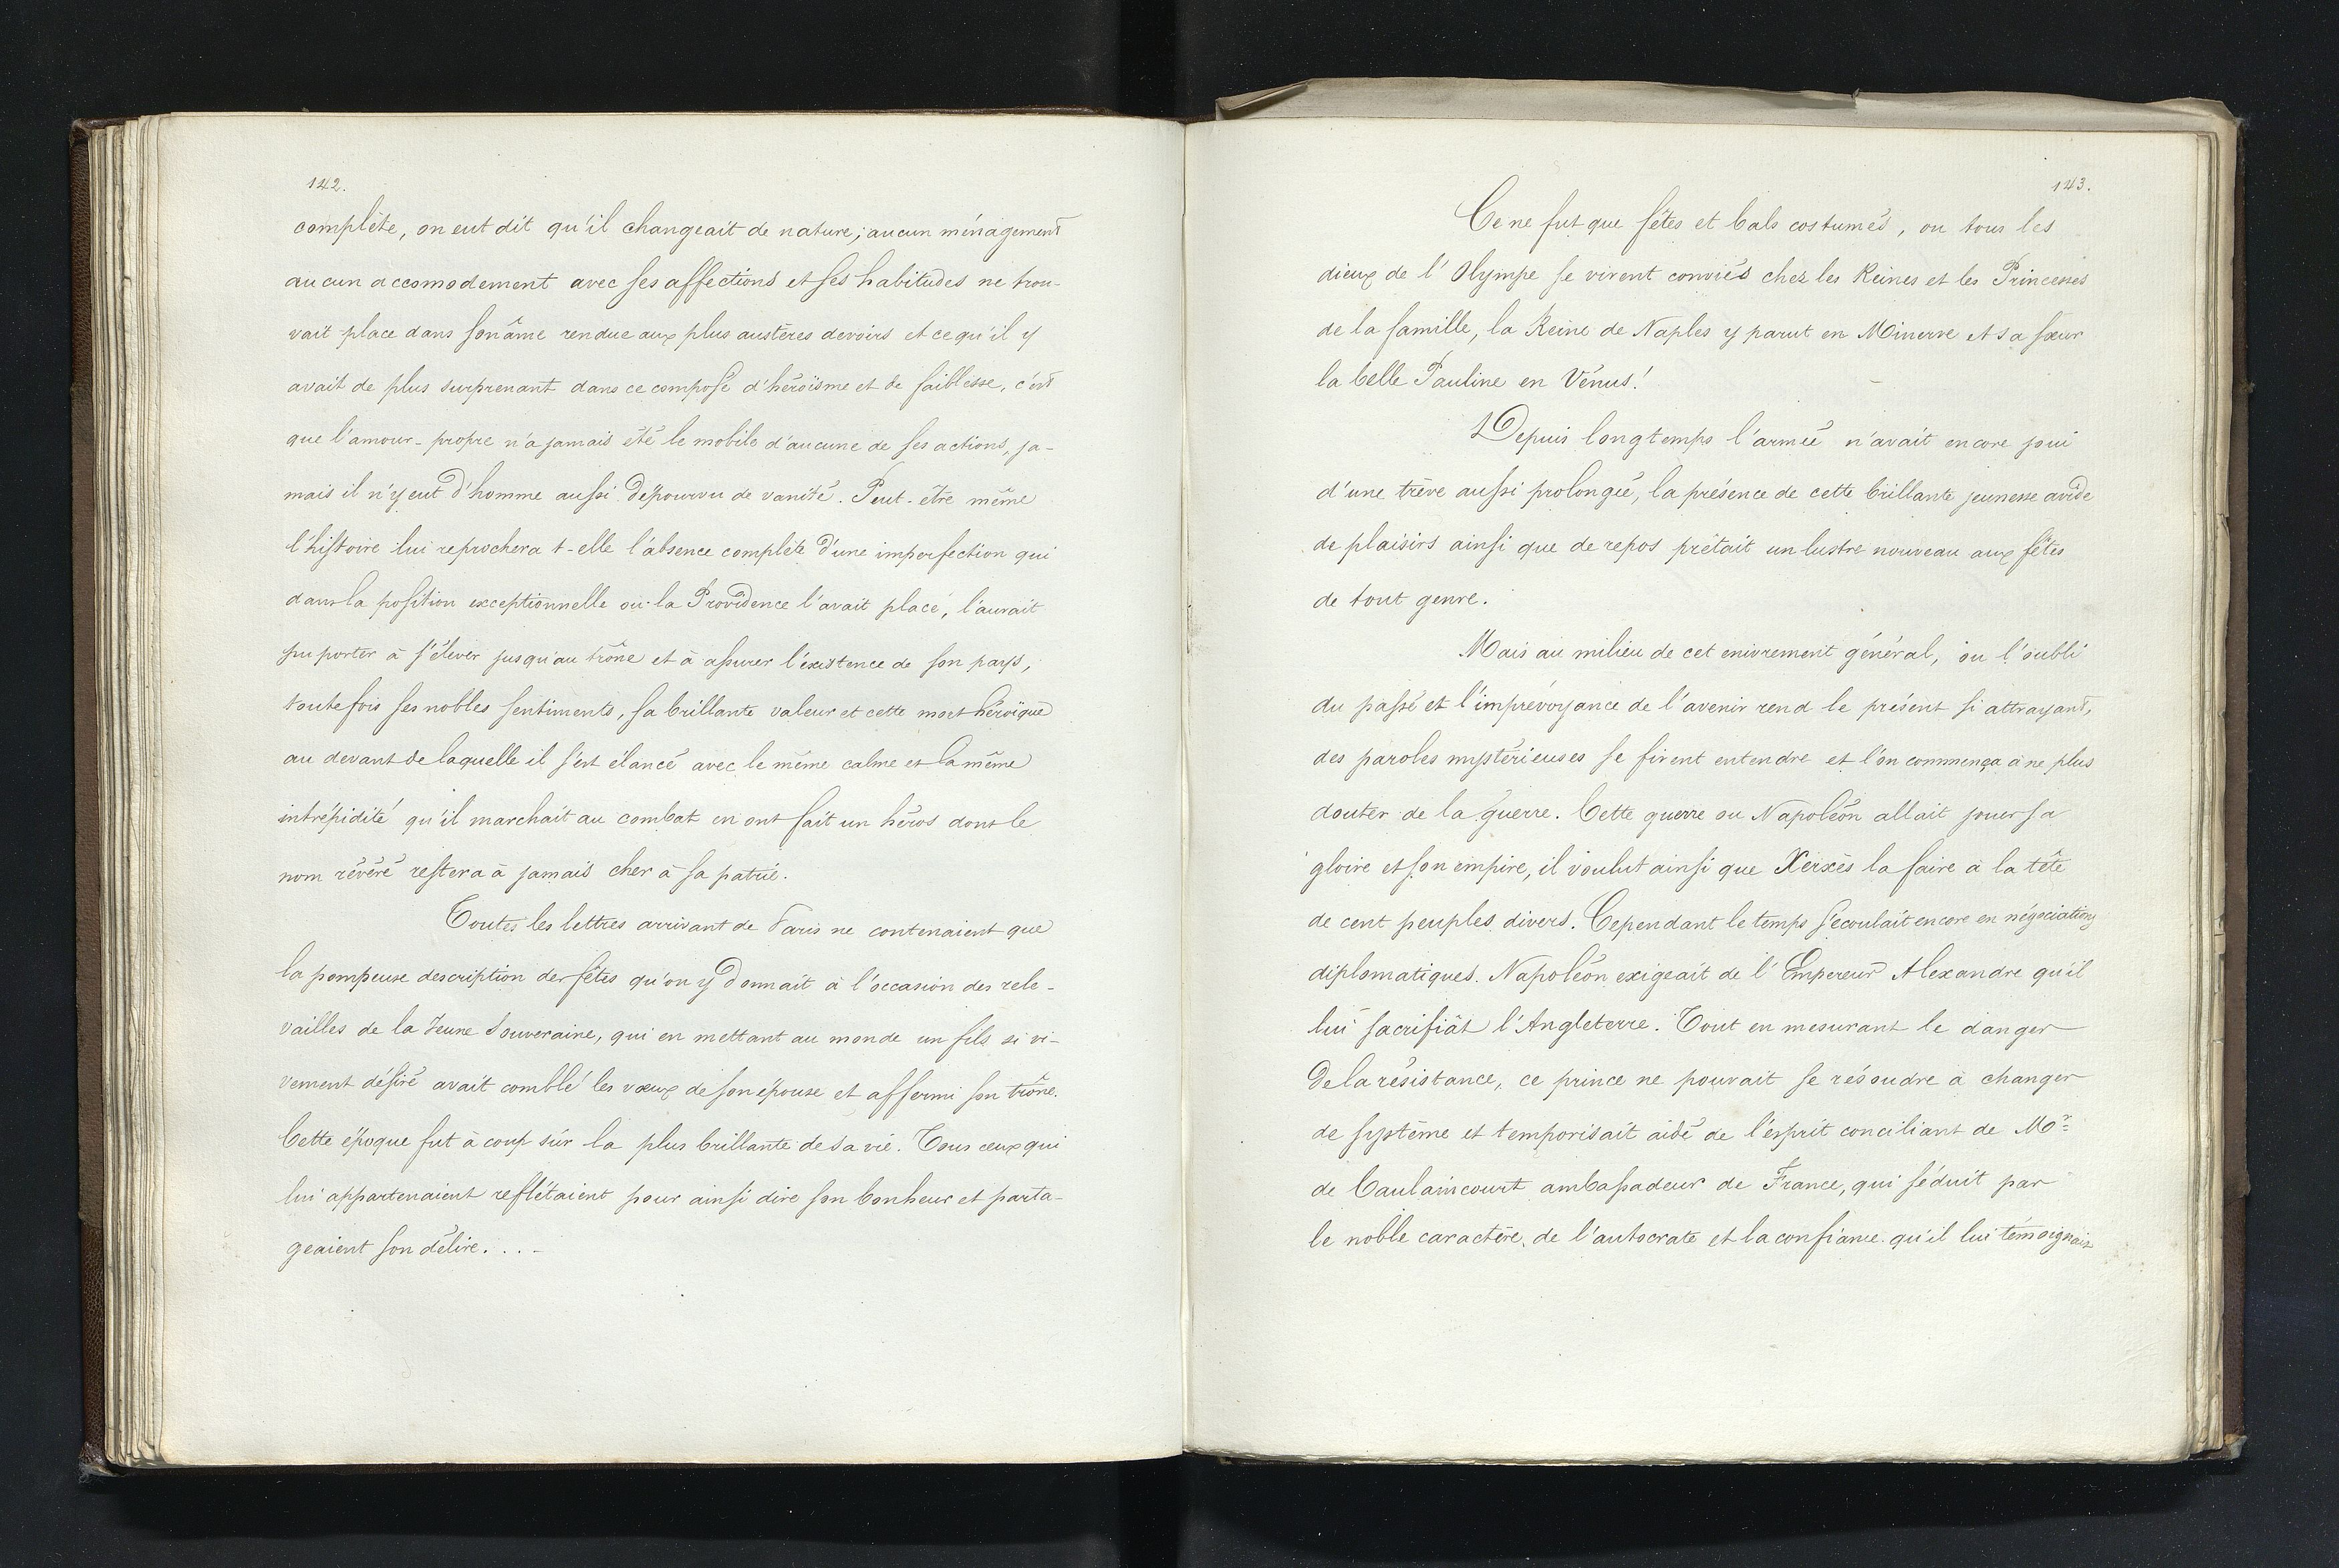 142.
complète, on eut dit qu'il changeait de nature; aucun ménagement
aucun accomodement avec ses affections et ses habitudes ne trou-
vait place dans son âme rendue aux plus austères devoirs et ce qu'il y
avait de plus surprenant dans ce composé d'héroïsme et de faiblesse, c'est
que l'amour-propre n'a jamais été le mobile d'aucune de ses actions, ja-
mais il n'y eut d'homme aussi dépourvu de vanité. Peut-être même
l'histoire lui reprochera t-elle l'absence complète d'une imperfection qui
dans la position exceptionnelle où la Providence l'avait placé, l'aurait
pu porter à s'élever jusqu'au trône et à assurer l'existence de son pays,
toutefois ses nobles sentiments, sa brillante valeur et cette mort héroïque
au devant de laquelle il s'est élancé avec le même calme et la même
intrépidité qu'il marchait au combat en ont fait un héros dont le
nom révéré restera à jamais cher à sa patrie.
Toutes les lettres arrivant de Paris ne contenaient que
la pompeuse description des fêtes qu'on y donnait à l'occasion des rele-
vailles de la Jeune Souveraine, qui en mettant au monde un fils si vi-
vement désiré avait comblé les vœux de son épouse et affermi son trône.
Cette époque fut à coup sûr la plus brillante de sa vie. Tous ceux qui
lui appartenaient reflétaient pour ainsi dire son bonheur et parta-
geaient son délire. . . -
143.
Ce ne fut que fêtes et bals costumés, ou tous les
dieux de l'Olympe se virent conviés chez les Reines et les Princesses
de la famille, la Reine de Naples y parut en Minerve et sa sœur
la belle Pauline en Vénus!
Depuis longtemps l'armée n'avait encore joui
d'une trève aussi prolongée, la présence de cette brillante jeunesse avide
de plaisirs ainsi que de repos prêtait un lustre nouveau aux fêtes
de tout genre.
Mais au milieu de cet enivrement général, ou l'oubli
du passé et l'imprévoyance de l'avenir rend le présent si attrayant,
des paroles mystérieuses se firent entendre et l'on commença à ne plus
douter de la guerre. Cette guerre ou Napoléon allait jouer sa
gloire et son empire, il voulut ainsi que Xerxès la faire à la tête
de cent peuples divers. Cependant le temps s'écoulait encore en négociations
diplomatiques. Napoléon exigeait de l'Empereur Alexandre qu'il
lui sacrifiât l'Angleterre. Tout en mesurant le danger
de la résistance, ce prince ne pouvait se résoudre à changer
de système et temporisait aidé de l'esprit conciliant de Mr
de Caulaincourt ambassadeur de France, qui séduit par
le noble caractère, de l'autocrate et la confiance qu'il lui témoignait